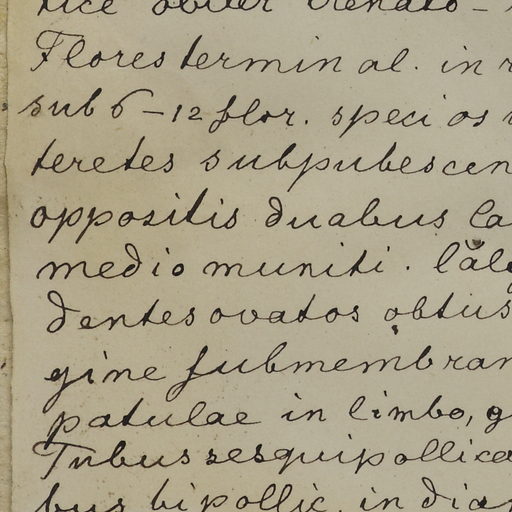 obiter crenato -
Flores terminal. in
sub 6 - 12 flor. specios
teretes subpubescen
oppositis duabus la
medio muniti. Caly
dentes ovatos obtus
gine submembran
patulae in limbo, g
Tubus sesquipollica
bus bipollic. in dia